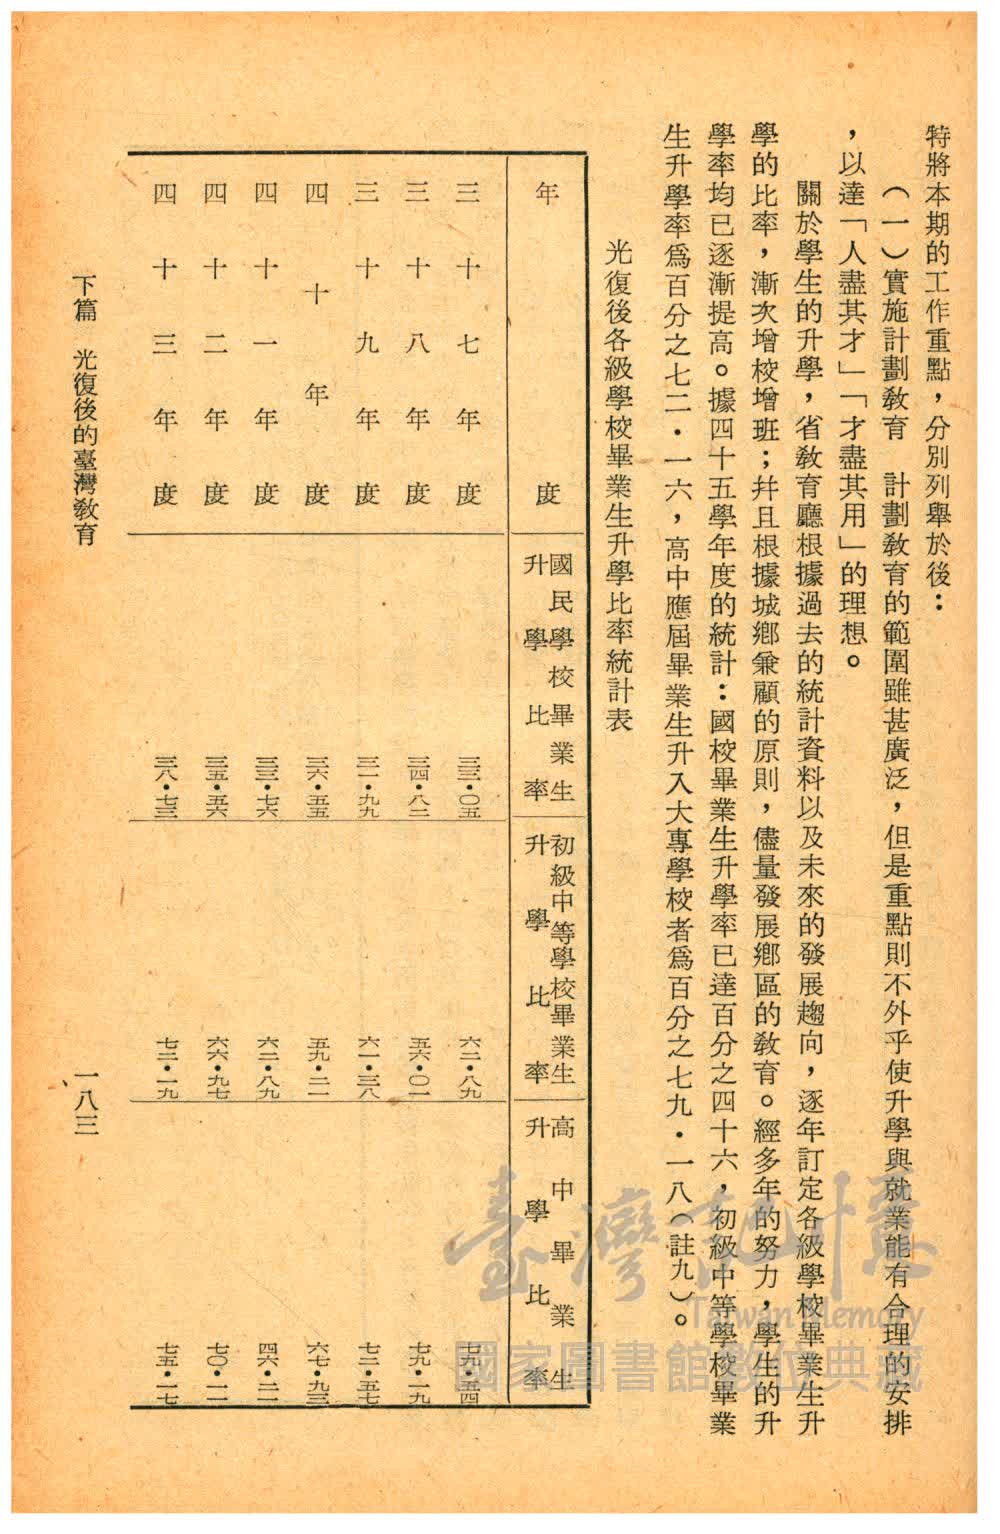 特將本期的工作重點，分別列舉於後：
（一）實施計劃教育　計劃教育的範圍雖甚廣泛，但是重點則不外乎使升學與就業能有合理的安排
，以達「人盡其才」「才盡其用」的理想。
關於學生的升學，省教育廳根據過去的統計資料以及未來的發展趨向，逐年訂定各級學校畢業生升
學的比率，漸次增校增班；幷且根據城鄉兼顧的原則，儘量發展鄉區的教育。經多年的努力，學生的升
學率均已逐漸提高。據四十五學年度的統計：國校畢業生升學率已達百分之四十六，初級中等學校畢業
生升學率爲百分之七二．一六，高中應屆畢業生升入大專學校者爲百分之七九．一八（註九）。
光復後各級學校畢業生升學比率統計表
年度　國民學校畢業生升學比率　初級中等學校畢業生升學比率　高中畢業生升學比率
三十七年度　三三．〇五　六二．八九　七九．五四
三十八年度　三四．八二　五六．〇一　七九．一九
三十九年度　三一．九九　六一．三八　七二．五七
四十年度　三六．五五　五九．二一　六七．九三
四十一年度　三三．七六　六二．八九　四六．二一
四十二年度　三五．五六　六六．九七　七〇．一一
四十三年度　三八．七三　七二．一九　七五．一七
下篇　光復後的臺灣教育
一八三
臺灣記憶
Taiwan Memory
國家圖書館數位典藏